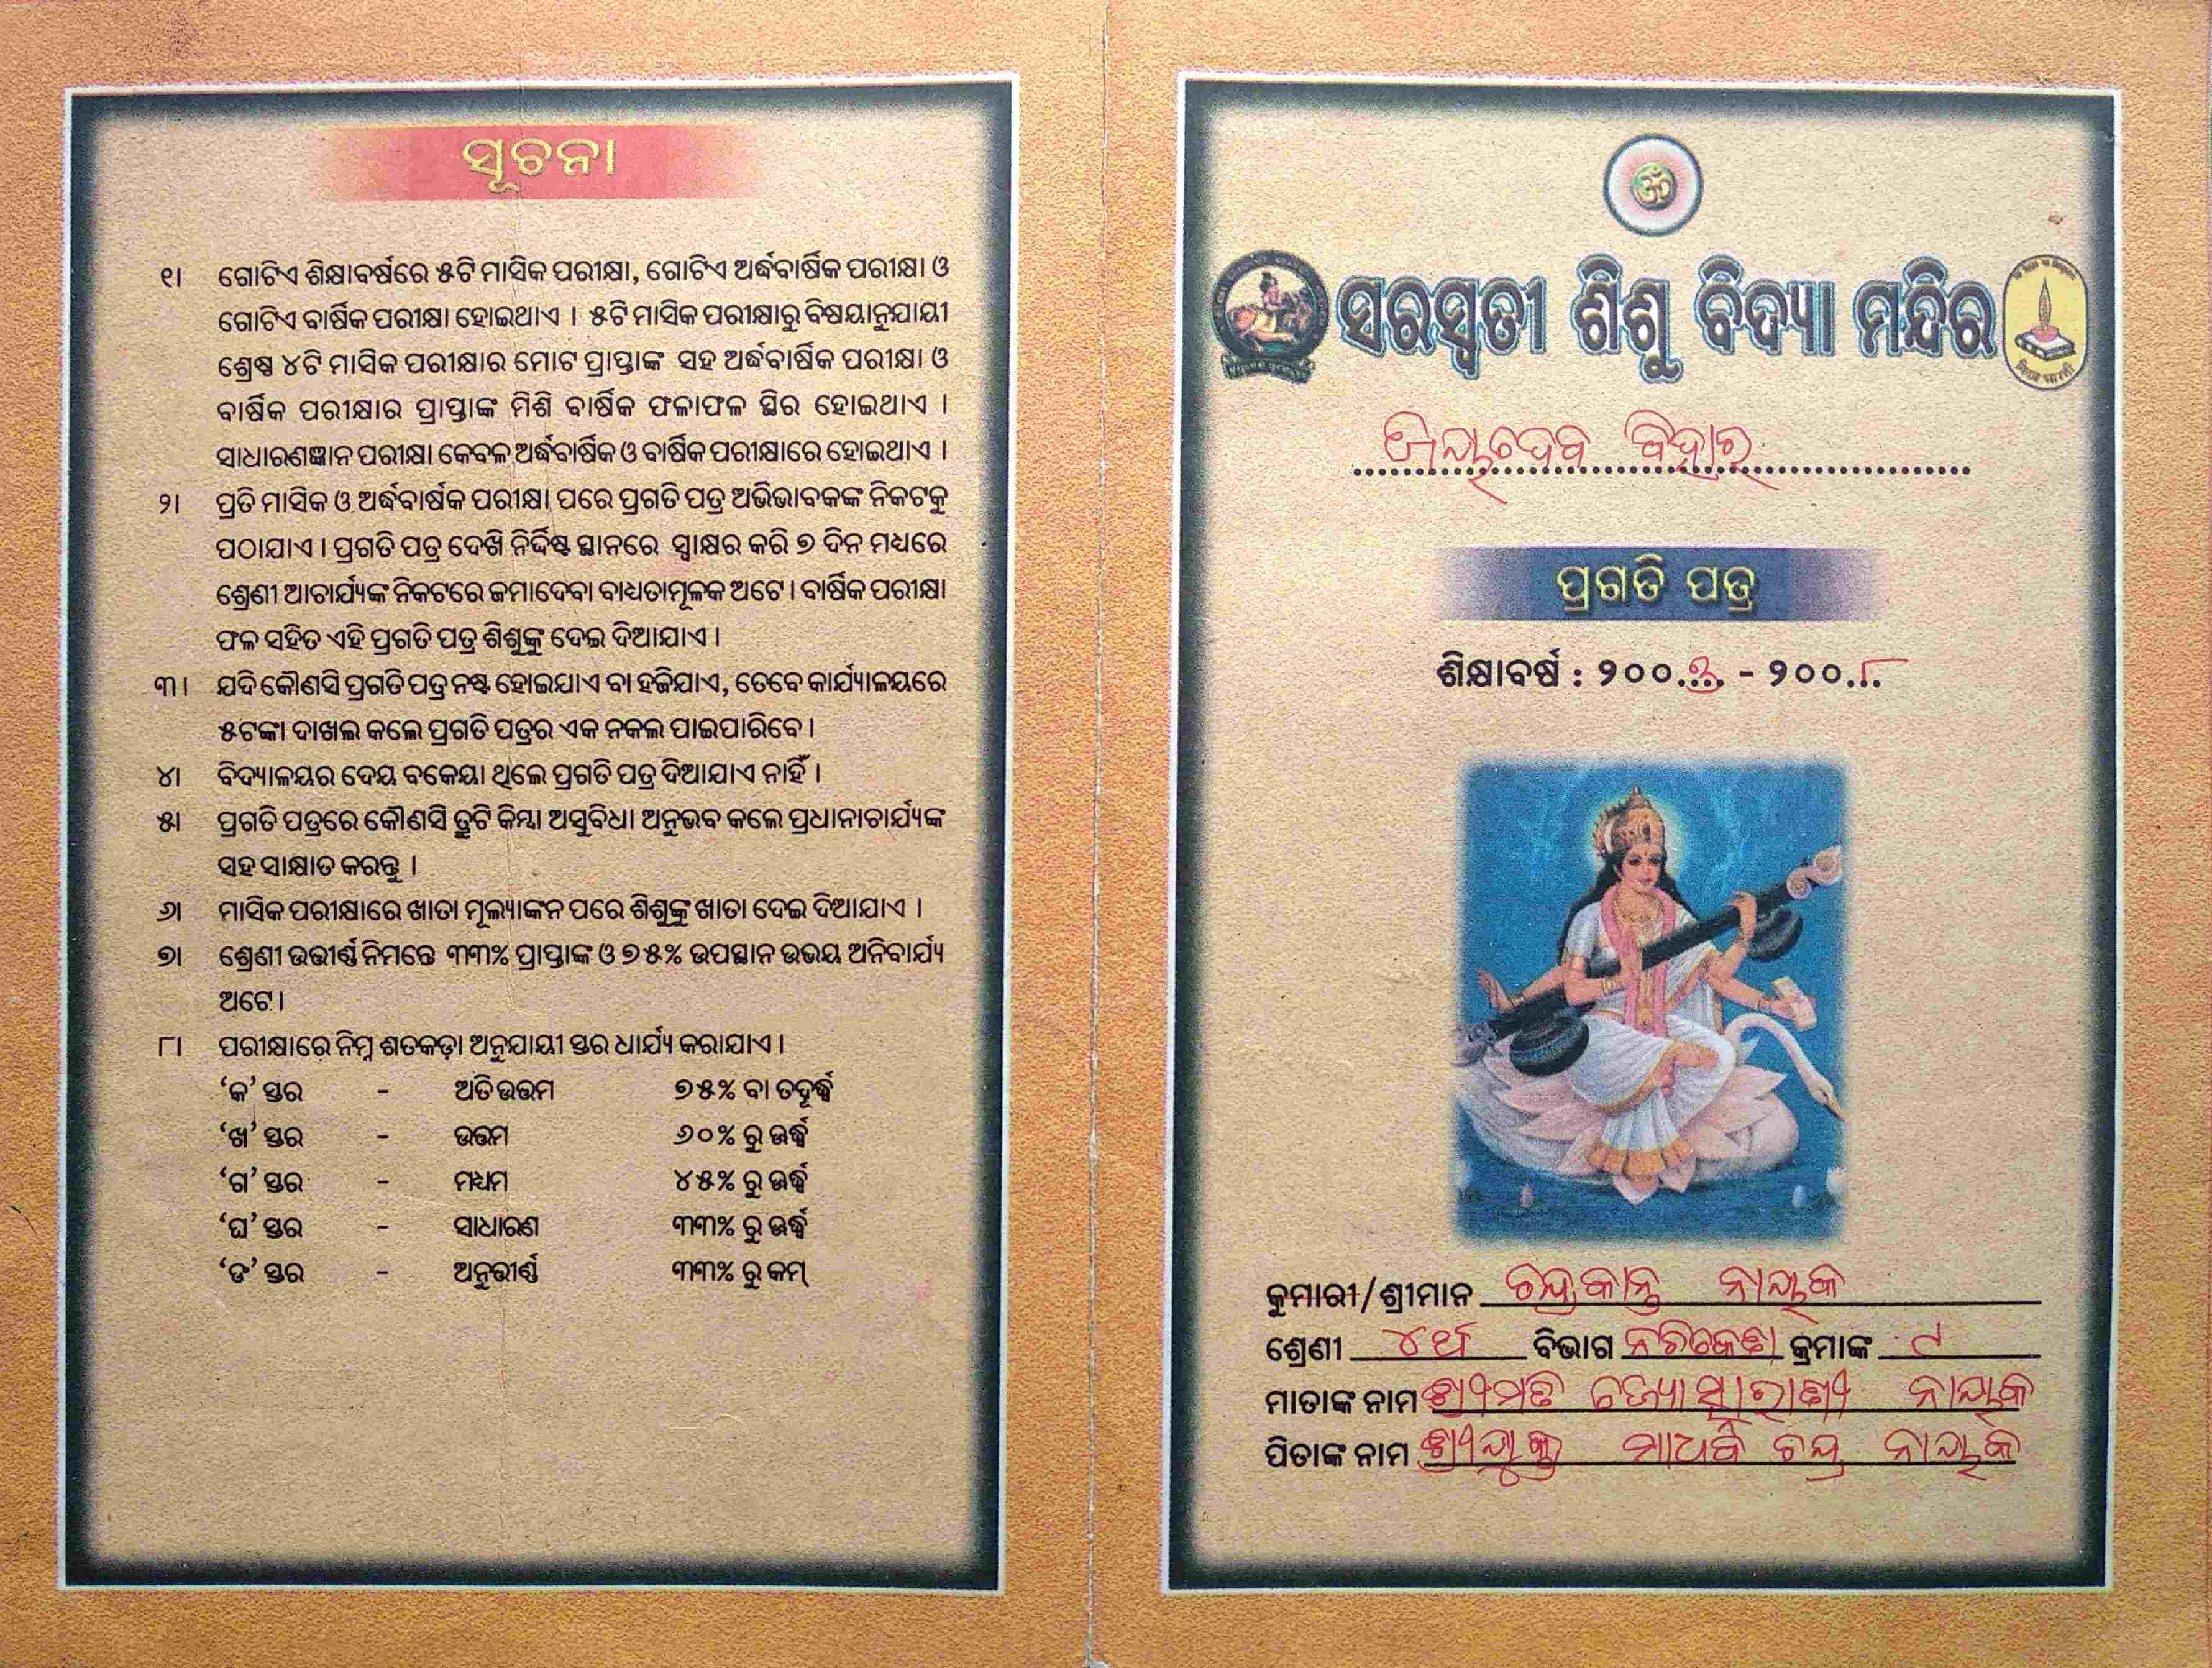 ସୂଚନା
୧। ଗୋଟିଏ ଶିକ୍ଷାବର୍ଷରେ ୫ଟି ମାସିକ ପରୀକ୍ଷା, ଗୋଟିଏ ଅର୍ଦ୍ଧବାର୍ଷିକ ପରୀକ୍ଷା ଓ
ଗୋଟିଏ ବାର୍ଷିକ ପରୀକ୍ଷା ହୋଇଥାଏ । ୫ଟି ମାସିକ ପରୀକ୍ଷାରୁ ବିଷୟାନୁଯାୟୀ
ଶ୍ରେଷ୍ଠ ୪ଟି ମାସିକ ପରୀକ୍ଷାର ମୋଟ ପ୍ରାପ୍ତାଙ୍କ ସହ ଅର୍ଦ୍ଧବାର୍ଷିକ ପରୀକ୍ଷା ଓ
ବାର୍ଷିକ ପରୀକ୍ଷାର ପ୍ରାପ୍ତାଙ୍କ ମିଶି ବାର୍ଷିକ ଫଳାଫଳ ସ୍ଥିର ହୋଇଥାଏ ।
ସାଧାରଣଜ୍ଞାନ ପରୀକ୍ଷା କେବଳ ଅର୍ଦ୍ଧବାର୍ଷିକ ଓ ବାର୍ଷିକ ପରୀକ୍ଷାରେ ହୋଇଥାଏ ।
୨। ପ୍ରତି ମାସିକ ଓ ଅର୍ଦ୍ଧବାର୍ଷକ ପରୀକ୍ଷା ପରେ ପ୍ରଗତି ପତ୍ର ଅଭିଭାବକଙ୍କ ନିକଟକୁ
ପଠାଯାଏ । ପ୍ରଗତି ପତ୍ର ଦେଖି ନିର୍ଦ୍ଦିଷ୍ଟ ସ୍ଥାନରେ ସ୍ୱାକ୍ଷର କରି ୭ ଦିନ ମଧ୍ୟରେ
ଶ୍ରେଣୀ ଆଚାର୍ଯ୍ୟଙ୍କ ନିକଟରେ ଜମାଦେବା ବାଧ୍ୟତାମୂଳକ ଅଟେ । ବାର୍ଷିକ ପରୀକ୍ଷା
ଫଳ ସହିତ ଏହି ପ୍ରଗତି ପତ୍ର ଶିଶୁଙ୍କୁ ଦେଇ ଦିଆଯାଏ ।
୩। ଯଦି କୌଣସି ପ୍ରଗତି ପତ୍ର ନଷ୍ଟ ହୋଇଯାଏ ବା ହଜିଯାଏ, ତେବେ କାର୍ଯ୍ୟାଳୟରେ
୫ଟଙ୍କା ଦାଖଲ କଲେ ପ୍ରଗତି ପତ୍ରର ଏକ ନକଲ ପାଇପାରିବେ ।
୪। ବିଦ୍ୟାଳୟର ଦେୟ ବକେୟା ଥିଲେ ପ୍ରଗତି ପତ୍ର ଦିଆଯାଏ ନାହିଁ ।
୫। ପ୍ରଗତି ପତ୍ରରେ କୌଣସି ତ୍ରୁଟି କିମ୍ବା ଅସୁବିଧା ଅନୁଭବ କଲେ ପ୍ରଧାନାଚାର୍ଯ୍ୟଙ୍କ
ସହ ସାକ୍ଷାତ କରନ୍ତୁ ।
୬। ମାସିକ ପରୀକ୍ଷାରେ ଖାତା ମୂଲ୍ୟାଙ୍କନ ପରେ ଶିଶୁଙ୍କୁ ଖାତା ଦେଇ ଦିଆଯାଏ ।
୭। ଶ୍ରେଣୀ ଉତ୍ତୀର୍ଣ୍ଣ ନିମନ୍ତେ ୩୩% ପ୍ରାପ୍ତାଙ୍କ ଓ ୭୫% ଉପସ୍ଥାନ ଉଭୟ ଅନିବାର୍ଯ୍ୟ
ଅଟେ ।
୮। ପରୀକ୍ଷାରେ ନିମ୍ନ ଶତକଡ଼ା ଅନୁଯାୟୀ ସ୍ତର ଧାର୍ଯ୍ୟ କରାଯାଏ ।
‘କ’ ସ୍ତର - ଅତି ଉତ୍ତମ ୭୫% ବା ତଦୂର୍ଦ୍ଧ୍ୱ
‘ଖ’ ସ୍ତର - ଉତ୍ତମ ୬୦% ରୁ ଊର୍ଦ୍ଧ୍ୱ
‘ଗ’ ସ୍ତର - ମଧ୍ୟମ ୪୫% ରୁ ଊର୍ଦ୍ଧ୍ୱ
‘ଘ’ ସ୍ତର - ସାଧାରଣ ୩୩% ରୁ ଊର୍ଦ୍ଧ୍ୱ
‘ଙ’ ସ୍ତର - ଅନୁତ୍ତୀର୍ଣ୍ଣ ୩୩% ରୁ କମ୍
ॐ
ସରସ୍ୱତୀ ଶିଶୁ ବିଦ୍ୟା ମନ୍ଦିର
ଜୟଦେବ ବିହାର
ପ୍ରଗତି ପତ୍ର
ଶିକ୍ଷାବର୍ଷ : ୨୦୦.... - ୨୦୦୮
କୁମାରୀ/ଶ୍ରୀମାନ ଚନ୍ଦ୍ରକାନ୍ତ ନାୟକ
ଶ୍ରେଣୀ ୪ର୍ଥ ବିଭାଗ ନଚିକେତା କ୍ରମାଙ୍କ ୯
ମାତାଙ୍କ ନାମ ଶ୍ରୀମତି ନାୟକ
ପିତାଙ୍କ ନାମ ଶ୍ରୀଯୁକ୍ତ ମାଧବ ଚନ୍ଦ୍ର ନାୟକ